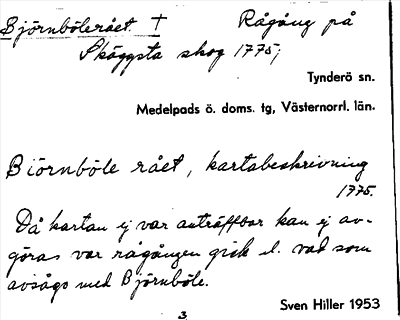 Björnbölerået † Rågång på
Sköggsta skog 1775;
Tynderö sn.
Medelpads ö. doms. tg, Västernorrl. län.
Biörnböle rået, kartabeskrivning
1775.
Då kartan ej var anträffbar kan ej av-
göras var rågången gick el. vad som
avsågs med Björnböle.
Sven Hiller 1953
3